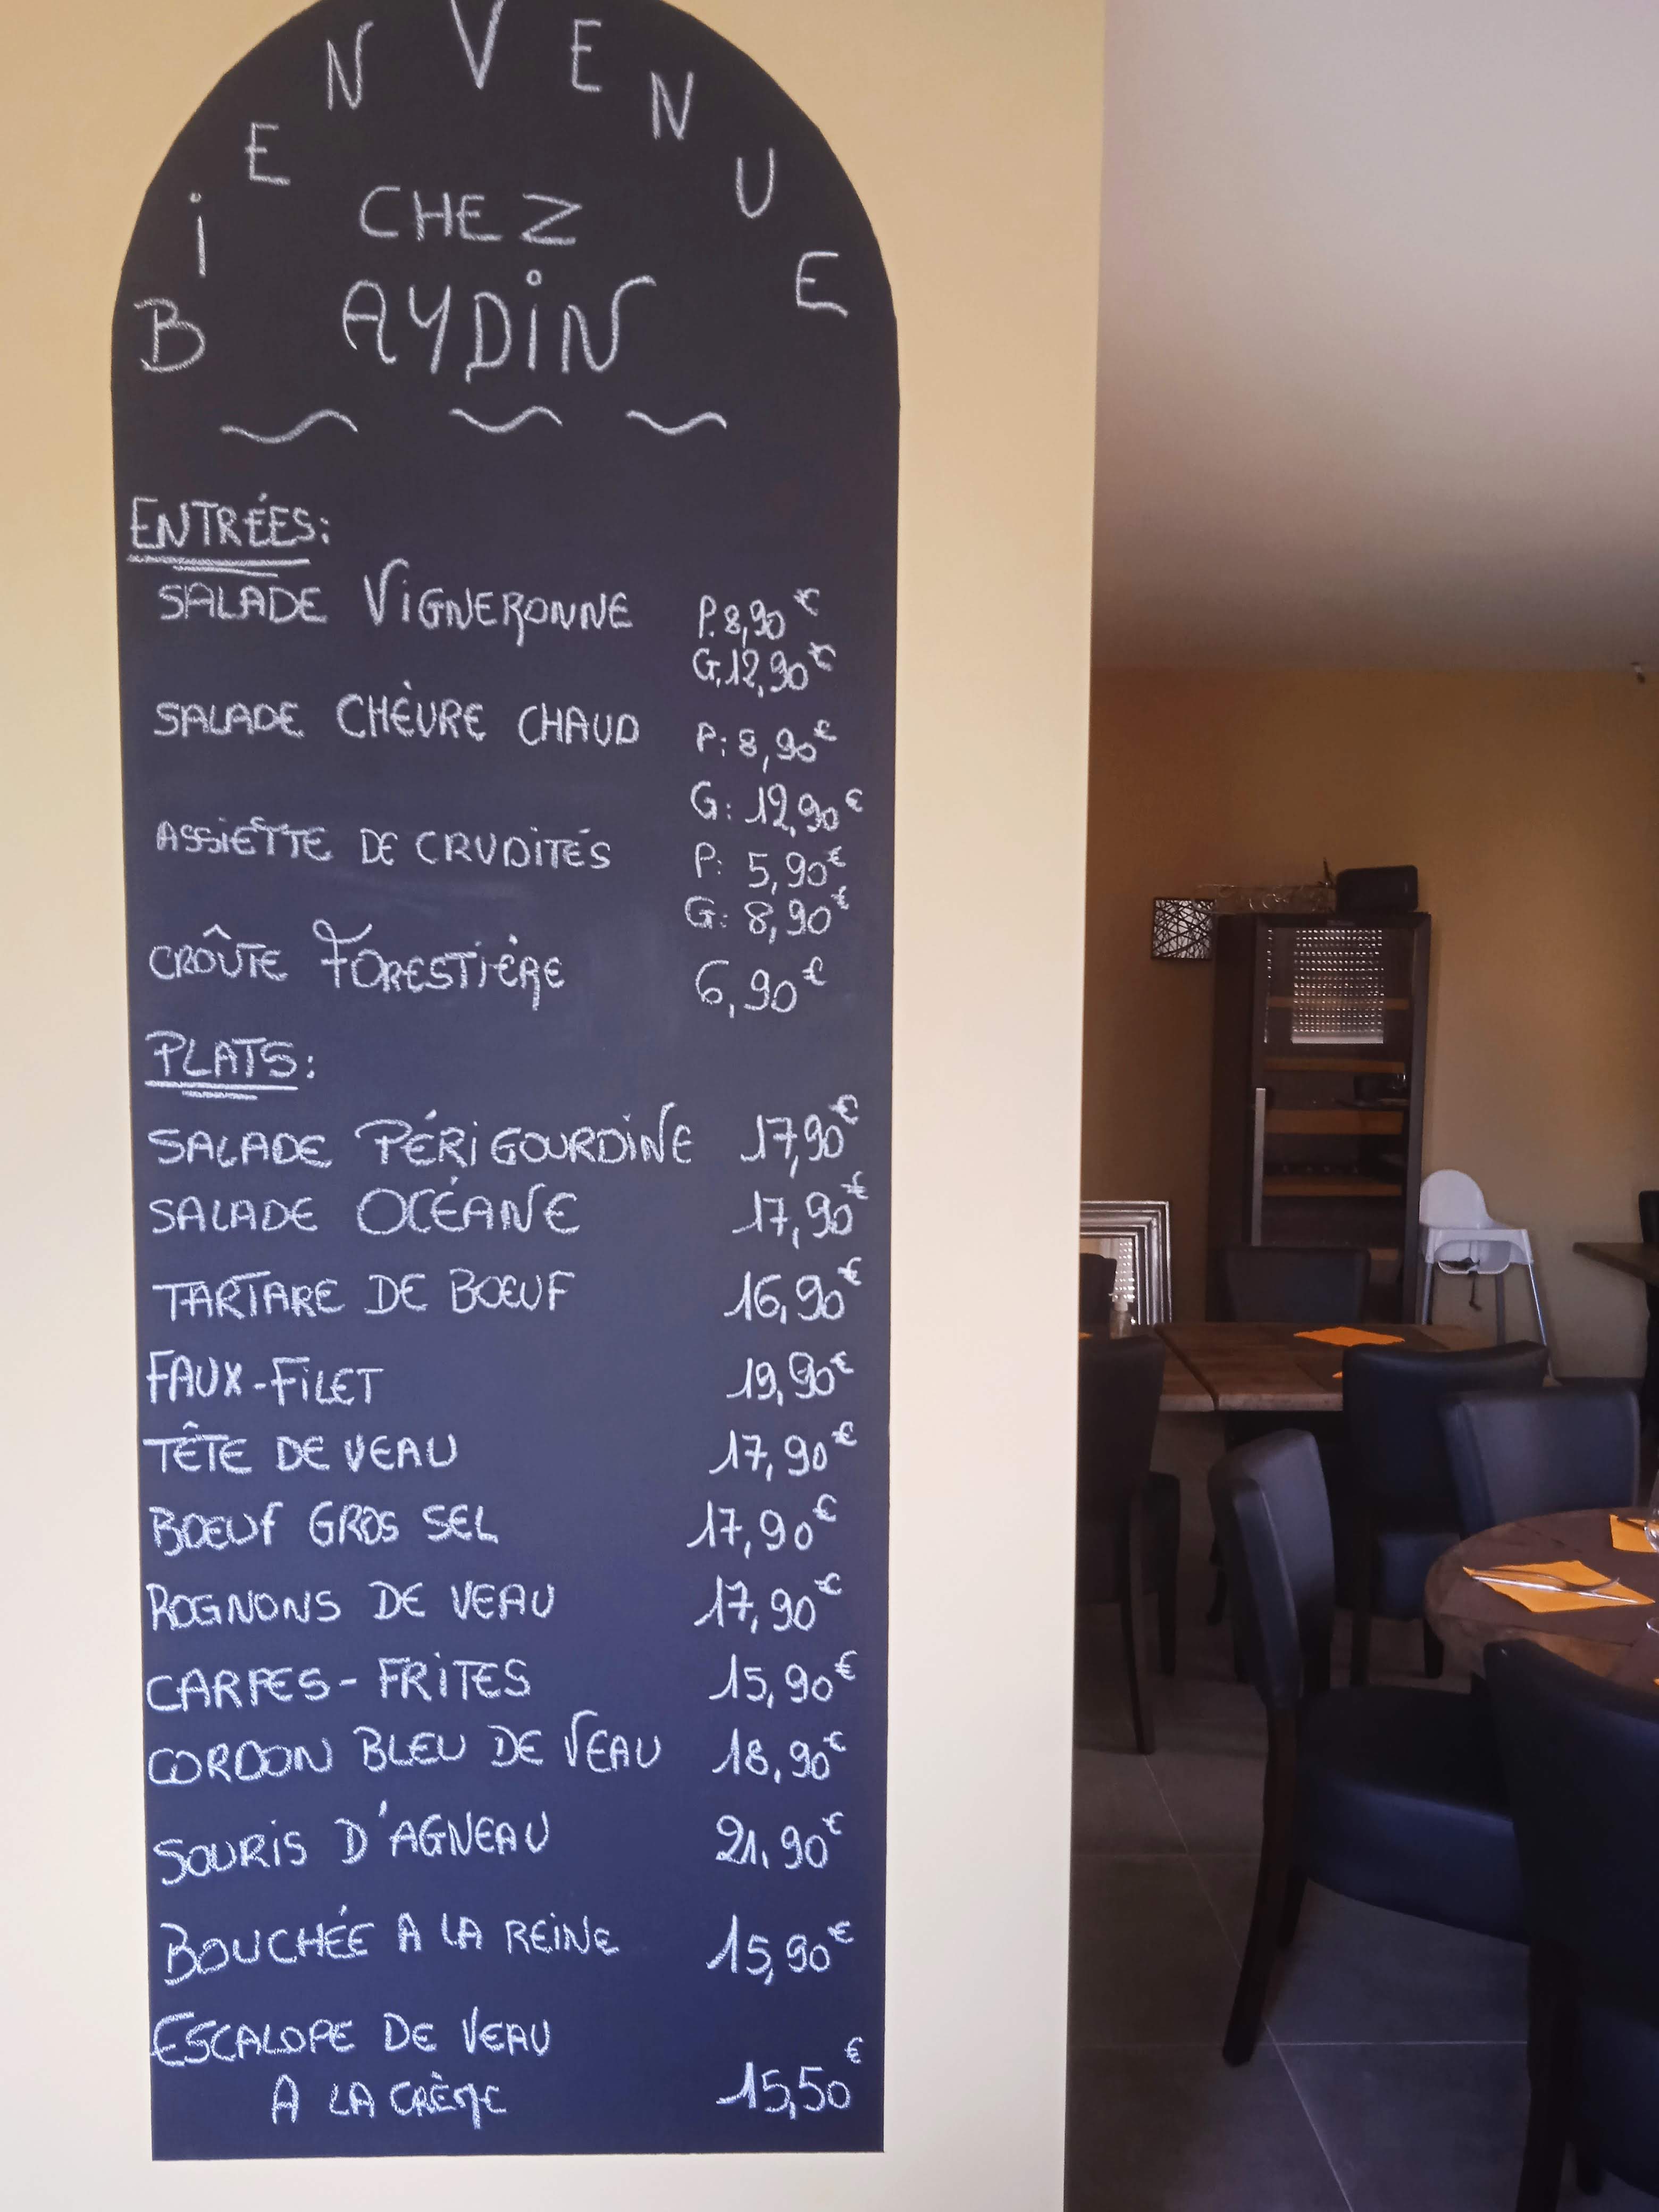 BiENVENUE
CHEZ
AYDiN
ENTRÉES:
SALADE ViGNERONNE P.8,90€
G.12,90€
SALADE CHÈVRE CHAUD P:8,90€
G:12,90€
ASSiETTE DE CRUDiTÉS P: 5,90€
G: 8,90€
CROÛTE FORESTiÈRE 6,90€
PLATS:
SALADE PÉRiGOURDiNE 17,90€
SALADE OCÉANE 17,90€
TARTARE DE BŒUF 16,90€
FAUX-FiLET 19,90€
TÊTE DE VEAU 17,90€
BŒUf GROS SEL 17,90€
ROGNONS DE VEAU 17,90€
CARPES-FRiTES 15,90€
CORDON BLEU DE VEAU 18,90€
SOURiS D'AGNEAU 21,90€
BOUCHÉE A LA REiNE 15,90€
ESCALOPE DE VEAU
A LA CRÈME 15,50€